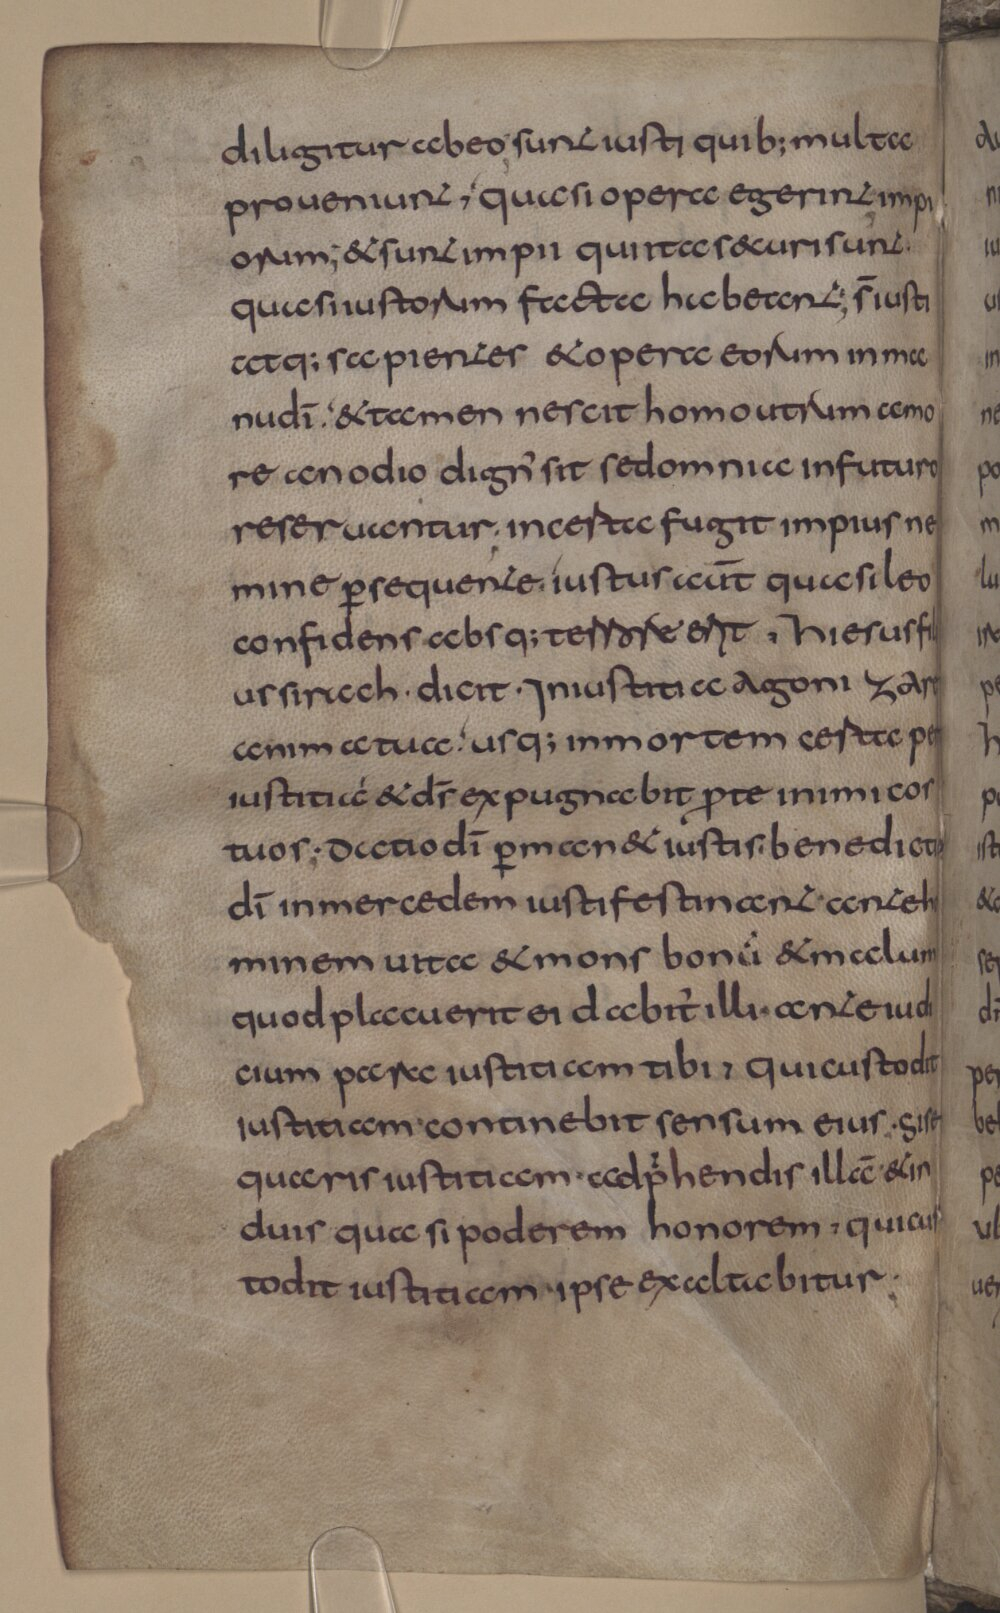 diligitur abeo; sunt iusti quib; multa
proueniunt; quasi opera egerint impi
orum; & sunt impii qui ita s&uri sunt.
quasi iustorum facta habeant; s̄ iusti
atq; sapientes & opera eorum in ma
nu dī. & tamen nescit homo utrum amo
re an odio dign᾽ sit sed omnia in futuro
reseruantur. in cesta fugit impius ne
mine ꝑsequente. iustus aūt quasi leo
confidens absq; terrore erit. hiesus fili
us sirach. dicit. Iniustitia agoni zare
anima tua. usq; in mortem certa pe
iustitia & ds̄ expugnabit ꝓ te inimicos
tuos; Datio dī ꝑman& iustis. benedictio
dī in mercedem iusti festinant ante h
minem uita & mors bonū & malum
quod placuerit ei dabit᾽ illi. ante iudi
cium para iustitiam tibi, qui custodit
iustitiam continebit sensum eius. Si se
quaris iustitiam. adp̄hendis illā & in
duis quasi poderem honorem, qui cus
todit iustitiam ipse exaltabitur.